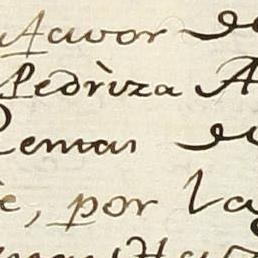 Favor de
Pedriza A
Remas de
e, por la